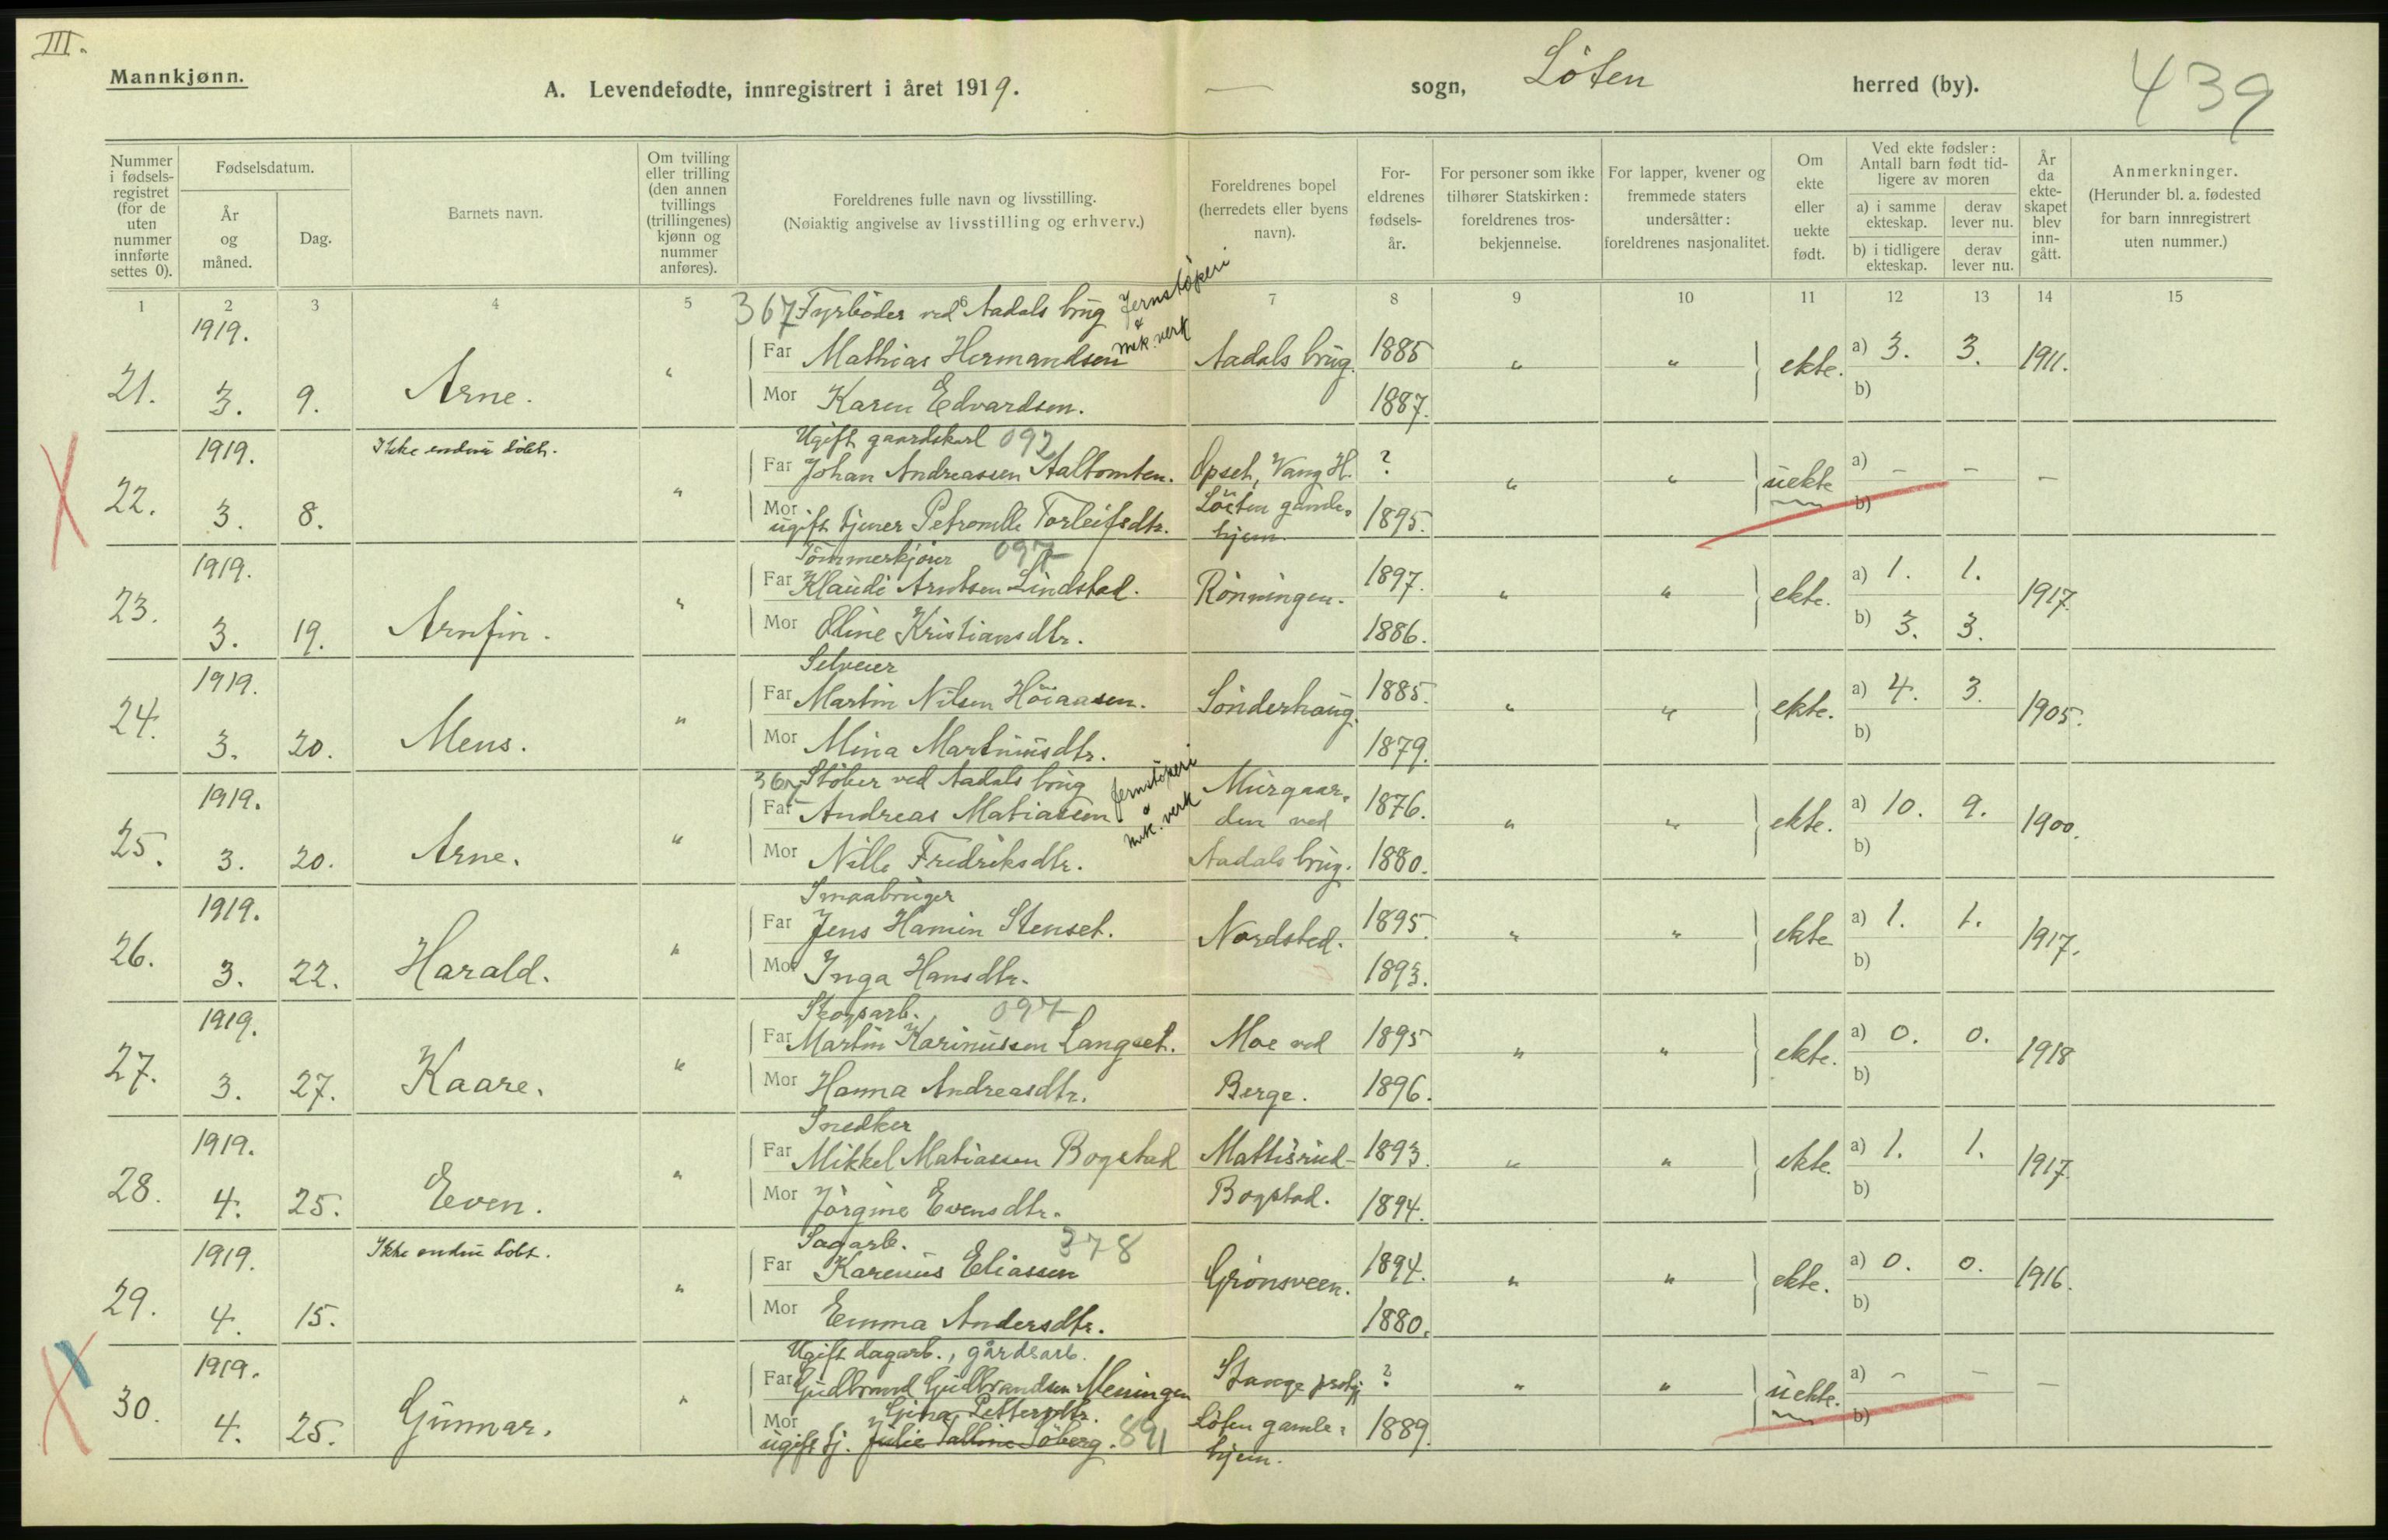 III.
Mannkjønn.
A. Levendefødte, innregistrert i året 1919. — sogn, Löten herred (by).
439
Nummer i fødsels-registret (for de uten nummer innførte settes 0).
Fødselsdatum.
År og måned.
Dag.
Barnets navn.
Om tvilling eller trilling (den annen tvillings (trillingenes) kjønn og nummer anføres).
Foreldrenes fulle navn og livsstilling.
(Nøiaktig angivelse av livsstilling og erhverv.)
Foreldrenes bopel (herredets eller byens navn).
For-eldrenes fødsels-år.
For personer som ikke tilhører Statskirken: foreldrenes tros-bekjennelse.
For lapper, kvener og fremmede staters undersåtter: foreldrenes nasjonalitet.
Om ekte eller uekte født.
Ved ekte fødsler: Antall barn født tid-ligere av moren
a) i samme ekteskap.
derav lever nu.
b) i tidligere ekteskap.
derav lever nu.
År da ekte-skapet blev inn-gått.
Anmerkninger.
(Herunder bl. a. fødested for barn innregistrert uten nummer.)
1 2 3 4 5 6 7 8 9 10 11 12 13 14 15
1919. 367 Fyrböder ved Aadals brug Jernstöperi & mek. verk
Far Mathias Hermandsen Aadals brug. 1885 a) 3. 3.
21. 3. 9. Arne. " " " ekte. 1911.
Mor Karen Edvardsen. 1887. b)
1919. Ikke endnu döbt. Ugift gaardskarl 092
Far Johan Andreassen Aaltomten. Opset, Vang H. ? a) — —
22. 3. 8. " " " uekte —
Mor ugift tjener Petronelle Torleifsdtr. Löiten gamle- hjem. 1895. b)
1919. Tömmerkjörer 097
Far Klaudi Arntsen Lindstad. Rönningen. 1897. a) 1. 1.
23. 3. 19. Arnfin. " " " ekte. 1917.
Mor Oline Kristiansdtr. 1886. b) 3. 3.
1919. Selveier
Far Martin Nilsen Höiaasen. Sönderhaug. 1885. a) 4. 3.
24. 3. 20. Mens. " " " ekte. 1905.
Mor Mina Martinusdtr. 1879. b)
1919. 367 Stöber ved Aadals brug Jernstöperi & mek. verk
Far Andreas Matiasen Murgaar- den ved 1876. a) 10. 9.
25. 3. 20. Arne. " " " ekte. 1900.
Mor Nille Fredriksdtr. Aadals brug. 1880. b)
1919. Smaabruger
Far Jens Hamin Stenset. Nordsted. 1895. a) 1. 1.
26. 3. 22. Harald. " " " ekte 1917.
Mor Inga Hansdtr. 1893. b)
1919. Skogsarb. 097
Far Martin Karinussen Langset. Moe ved 1895 a) 0. 0.
27. 3. 27. Kaare. " " " ekte. 1918
Mor Hanna Andreasdtr. Berge. 1896. b)
1919. Snedker
Far Mikkel Matiassen Bogstad Mattisrud- 1893. a) 1. 1.
28. 4. 25. Even. " " " ekte. 1917.
Mor Jörgine Evensdtr. Bogstad. 1894. b)
1919. Ikke endnu döbt. Sagarb. 378
Far Karenius Eliassen Grönsveen. 1894. a) 0. 0.
29. 4. 15. " " " ekte. 1916.
Mor Emma Andersdtr. 1880. b)
1919. Ugift dagarb., gårdsarb.
Far Gudbrand Gudbrandsen Meningen Stange prstgj ? a) — —
30. 4. 25. Gunnar. " " " uekte. —
Gina Pettersdtr.
Mor ugift tj. Julie Talline Söberg. 891 Löten gamle- hjem. 1889. b)